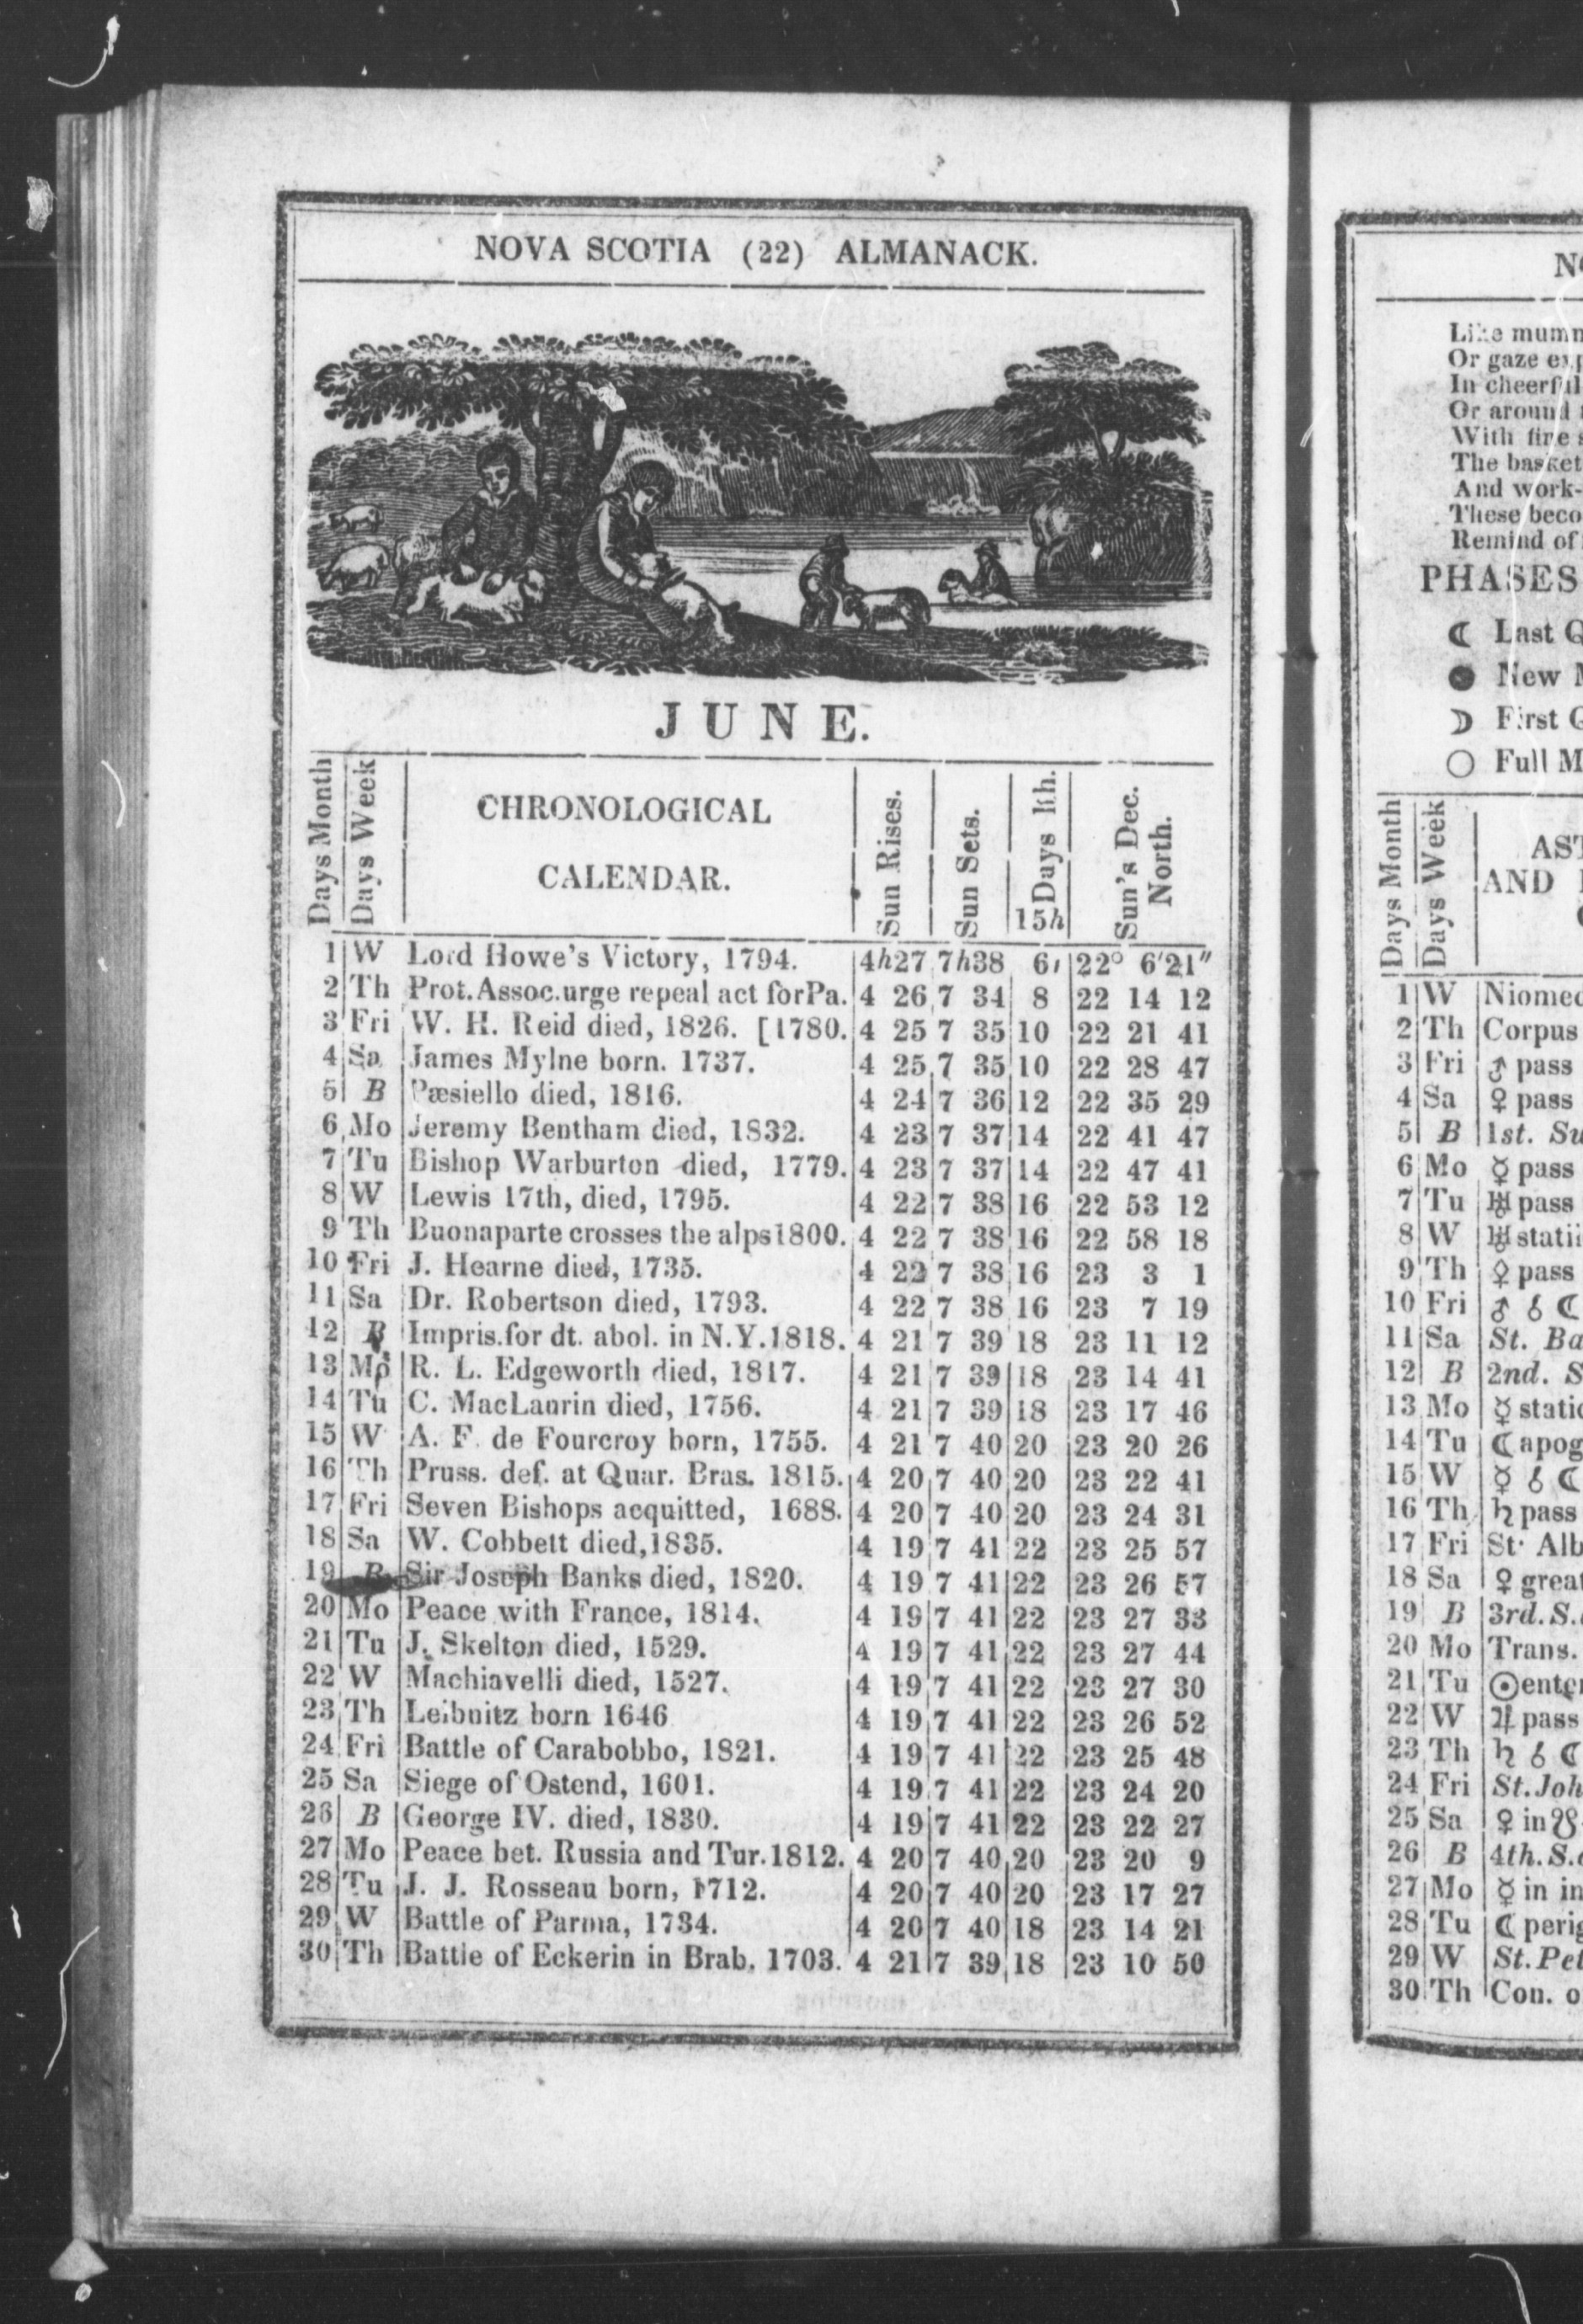 NOVA SCOTIA (22) ALMANACK.
JUNE.
Days Month
Days Week
CHRONOLOGICAL
CALENDAR.
Sun Rises.
Sun Sets.
Days lth.
15h
Sun's Dec.
North.
1 W Lord Howe's Victory, 1794. 4h27 7h38 6' 22° 6'21"
2 Th Prot.Assoc.urge repeal act forPa. 4 26 7 34 8 22 14 12
3 Fri W. H. Reid died, 1826. [1780. 4 25 7 35 10 22 21 41
4 Sa James Mylne born. 1737. 4 25 7 35 10 22 28 47
5 B Pæsiello died, 1816. 4 24 7 36 12 22 35 29
6 Mo Jeremy Bentham died, 1832. 4 23 7 37 14 22 41 47
7 Tu Bishop Warburton died, 1779. 4 23 7 37 14 22 47 41
8 W Lewis 17th, died, 1795. 4 22 7 38 16 22 53 12
9 Th Buonaparte crosses the alps1800. 4 22 7 38 16 22 58 18
10 Fri J. Hearne died, 1735. 4 22 7 38 16 23 3 1
11 Sa Dr. Robertson died, 1793. 4 22 7 38 16 23 7 19
12 B Impris.for dt. abol. in N.Y.1818. 4 21 7 39 18 23 11 12
13 Mo R. L. Edgeworth died, 1817. 4 21 7 39 18 23 14 41
14 Tu C. MacLaurin died, 1756. 4 21 7 39 18 23 17 46
15 W A. F. de Fourcroy born, 1755. 4 21 7 40 20 23 20 26
16 Th Pruss. def. at Quar. Bras. 1815. 4 20 7 40 20 23 22 41
17 Fri Seven Bishops acquitted, 1688. 4 20 7 40 20 23 24 31
18 Sa W. Cobbett died,1835. 4 19 7 41 22 23 25 57
19 B Sir Joseph Banks died, 1820. 4 19 7 41 22 23 26 57
20 Mo Peace with France, 1814. 4 19 7 41 22 23 27 33
21 Tu J. Skelton died, 1529. 4 19 7 41 22 23 27 44
22 W Machiavelli died, 1527. 4 19 7 41 22 23 27 30
23 Th Leibnitz born 1646 4 19 7 41 22 23 26 52
24 Fri Battle of Carabobbo, 1821. 4 19 7 41 22 23 25 48
25 Sa Siege of Ostend, 1601. 4 19 7 41 22 23 24 20
26 B George IV. died, 1830. 4 19 7 41 22 23 22 27
27 Mo Peace bet. Russia and Tur.1812. 4 20 7 40 20 23 20 9
28 Tu J. J. Rosseau born, 1712. 4 20 7 40 20 23 17 27
29 W Battle of Parma, 1734. 4 20 7 40 18 23 14 21
30 Th Battle of Eckerin in Brab. 1703. 4 21 7 39 18 23 10 50
Or gaze
In cheerful
Or around
With fire
The basket
And work-
These beco
Remind of
PHASES
☾ Last Q
● New M
☽ First Q
○ Full M
Days Month
Days Week
AST
AND
1 W Niomed
2 Th Corpus
3 Fri ♂ pass
4 Sa ♀ pass
5 B 1st. Su
6 Mo ☿ pass
7 Tu ♅ pass
8 W ♅ statii
9 Th ♀ pass
10 Fri ♂ ☌ ☾
11 Sa St. Ba
12 B 2nd. S
13 Mo ☿ static
14 Tu ☾ apog
15 W ☿ ☌ ☾
16 Th ♄ pass
17 Fri St· Alb
18 Sa ♀ great
19 B 3rd. S.
20 Mo Trans.
21 Tu ☉ enter
22 W ♃ pass
23 Th ♄ ☌ ☾
24 Fri St. Joh
25 Sa ♀ in ☋
26 B 4th. S.
27 Mo ☿ in in
28 Tu ☾ perig
29 W St. Pet
30 Th Con. o